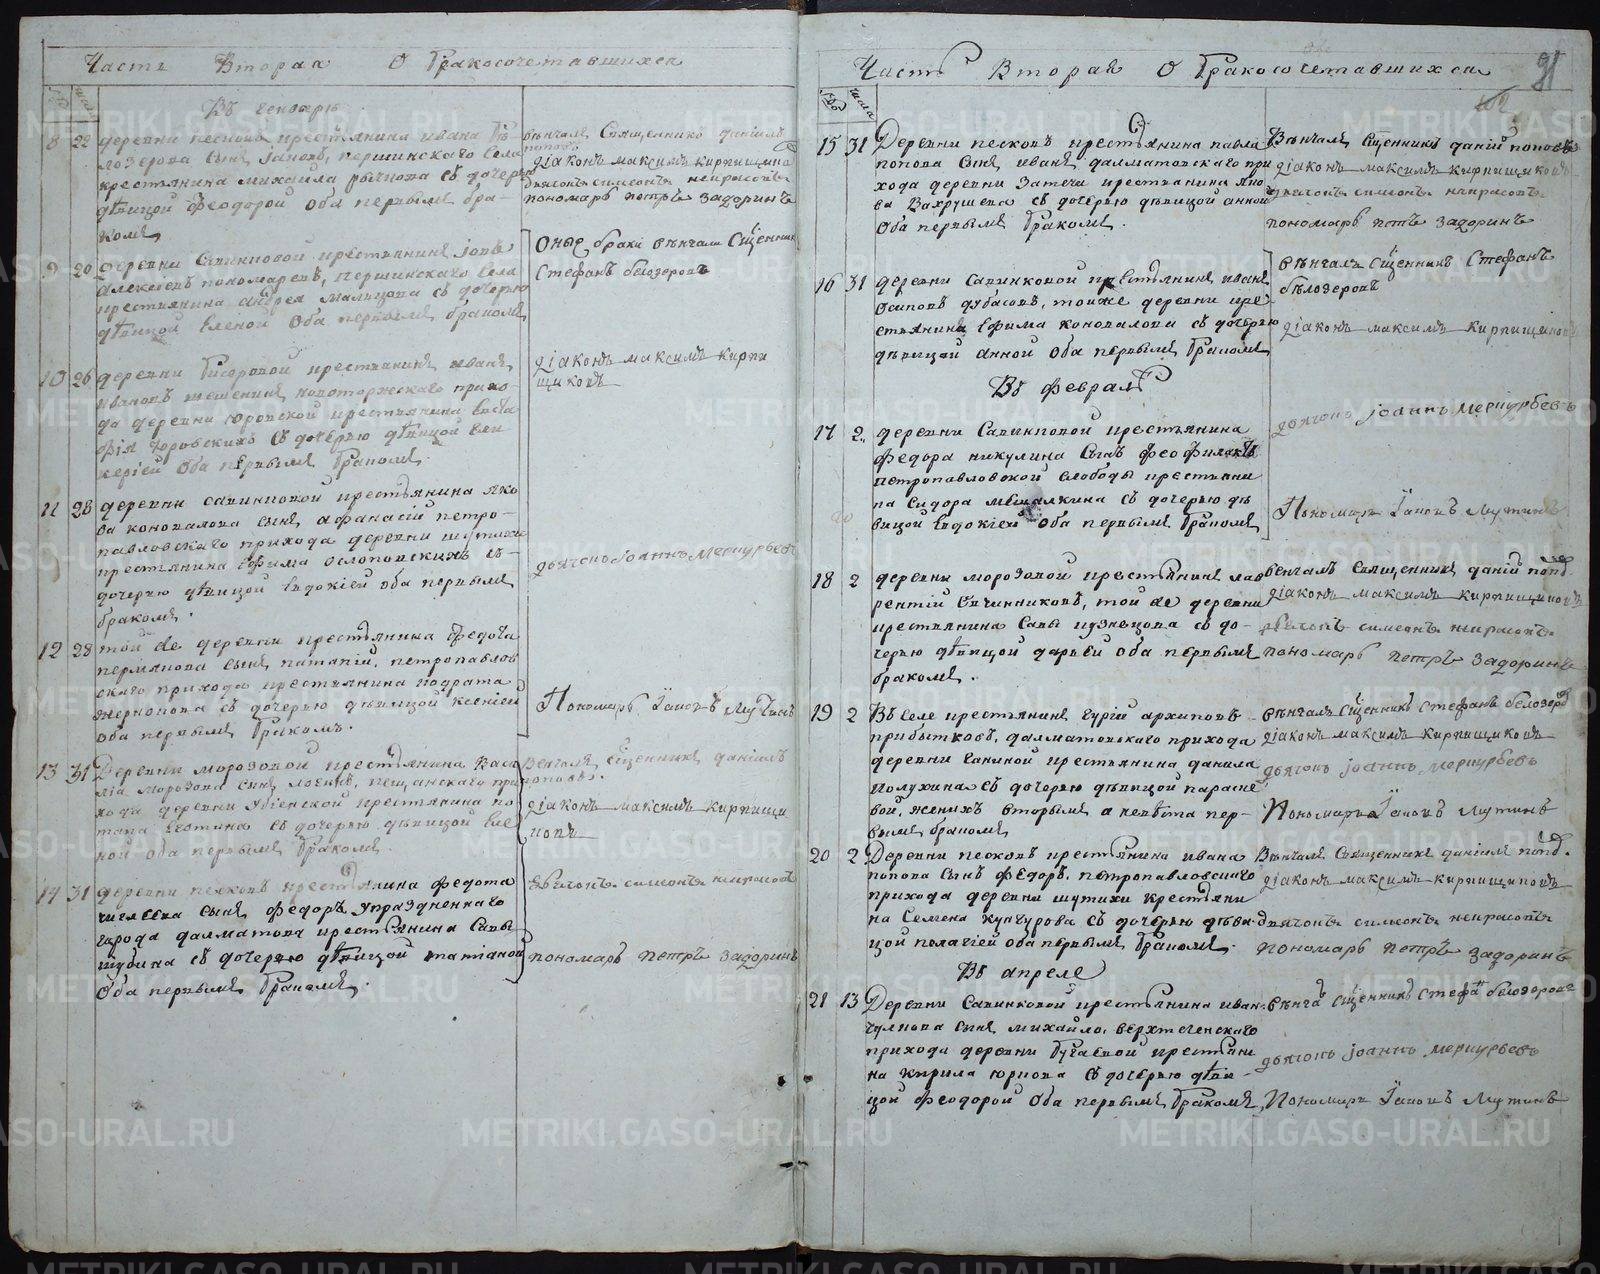 Часть Вторая О бракосочетавшихся
Въ генваре
8 22 деревни песковъ крестьянина ивана бѣ-
лозерова сынъ іаковъ, першинскаго села
крестьянина михайла рычкова съ дочерью
дѣвицой феодорой оба первымъ бра-
комъ
вѣнчалъ Священникъ даніилъ
поповъ
діаконъ максимъ кирпищико
дьячокъ симеонъ некрасовъ
пономарь петръ задоринъ
9 20 деревни Савинковой крестьянинъ іовъ
алексеевъ пономаревъ, першинскаго села
крестьянина андрея мальцова съ дочерью
дѣвицой Еленой оба первымъ бракомъ
Оныя браки вѣнчалъ Сщенникъ
Стефанъ белозеровъ
10 26 деревни крестьянинъ иванъ
ивановъ прихо-
да деревни юровской крестьянина
юровскихъ съ дочерью дѣвицой
оба первымъ бракомъ.
діаконъ максимъ кирпи
щиковъ
11 28 деревни савинковой крестьянина яко
ва коновалова сынъ афанасій петро-
павловскаго прихода деревни шутихи
крестьянина ефима ослоповскихъ съ-
дочерью дѣвицой Евдокіей оба первымъ
бракомъ.
дьячокъ іоаннъ меркурьевъ
12 28 той де деревни крестьянина
пермякова сынъ петропавлов
скаго прихода крестьянина кодрата
жернокова съ дочерью дѣвицой ксеніей
оба первымъ бракомъ.
Пономарь Іаковъ Мутинъ
13 31 Деревни морозовой крестьянина васи
лія морозова сынъ пещанскаго при
хода деревни крестьянина по
тапа съ дочерью дѣвицой еле
ной оба первымъ бракомъ.
Венчалъ Сщенникъ даніилъ
поповъ.
діаконъ максимъ кирпищи
ковъ
14 31 деревни песковъ крестьянина федота
сынъ федоръ упраздненнаго
города далматова крестьянина Савы
шубина съ дочерью дѣвицой татіаной
Оба первымъ бракомъ.
дьячокъ симеонъ некрасовъ
пономарь петръ задоринъ
Часть Вторая О бракосочетавшихся
91
102
15 31 Деревни песковъ крестьянина павла
попова сынъ иванъ, далматовскаго при
хода деревни затечи крестьянина яко
ва Вахрушева съ дочерью дѣвицой анной
оба первымъ бракомъ.
Вѣнчалъ Сщенникъ даніилъ поповъ
діаконъ максимъ кирпищиковъ
дьячокъ симеонъ некрасовъ
пономарь петръ задоринъ
16 31 деревни Савинковой крестьянинъ иванъ
осиповъ дубасовъ, тойже деревни кре-
стьянина Ефима коновалова съ дочерью
дѣвицой анной оба первымъ бракомъ
вѣнчалъ Сщенникъ Стефанъ
бѣлозеровъ
діаконъ максимъ кирпищиковъ
Въ февралѣ
17 2 деревни Савинковой крестьянина
федора никулина сынъ феофилактъ
петропавловской слободы крестьяни
на Сидора мещалкина съ дочерью дѣ
вицой Евдокіей оба первымъ бракомъ
дьячокъ іоаннъ меркурьевъ
Пономарь Іаковъ Мутинъ
18 2 деревни морозовой крестьянинъ лав
рентій овчинниковъ, той де деревни
крестьянина Савы кузнецова съ до-
черью дѣвицой дарьей оба первымъ
бракомъ.
венчалъ Священникъ даніилъ поповъ
діаконъ максимъ кирпищиковъ
дьячокъ симеонъ некрасовъ
пономарь петръ задоринъ
19 2 Въ селе крестьянинъ гурій архиповъ
прибытковъ, далматовскаго прихода
деревни ганиной крестьянина данила
полухина съ дочерью дѣвицой параске
вой, женихъ вторымъ а невѣста пер-
вымъ бракомъ
вѣнчалъ Сщенникъ Стефанъ белозеровъ
діаконъ максимъ кирпищиковъ
дьячокъ іоаннъ меркурьевъ
Пономарь Іаковъ Мутинъ
20 2 Деревни песковъ крестьянина ивана
попова сынъ федоръ, петропавловскаго
прихода деревни шутихи крестьяни
на Семена кунгурова съ дочерью дѣви-
цой пелагіей оба первымъ бракомъ.
Вѣнчалъ Священникъ даніилъ поповъ.
діаконъ максимъ кирпищиковъ
дьячокъ симеонъ некрасовъ
пономарь петръ задоринъ
Въ апреле
21 13 Деревни Савинковой крестьянина ивана
чулкова сынъ михайло, верхтеченскаго
прихода деревни бугаевой крестьяни
на кирила юркова съ дочерью дѣви-
цой феодорой оба первымъ бракомъ
вѣнчалъ Сщенникъ Стефанъ белозеровъ
дьячокъ іоаннъ меркурьевъ
Пономарь Іаковъ Мутинъ
METRIKI.GASO-URAL.RU